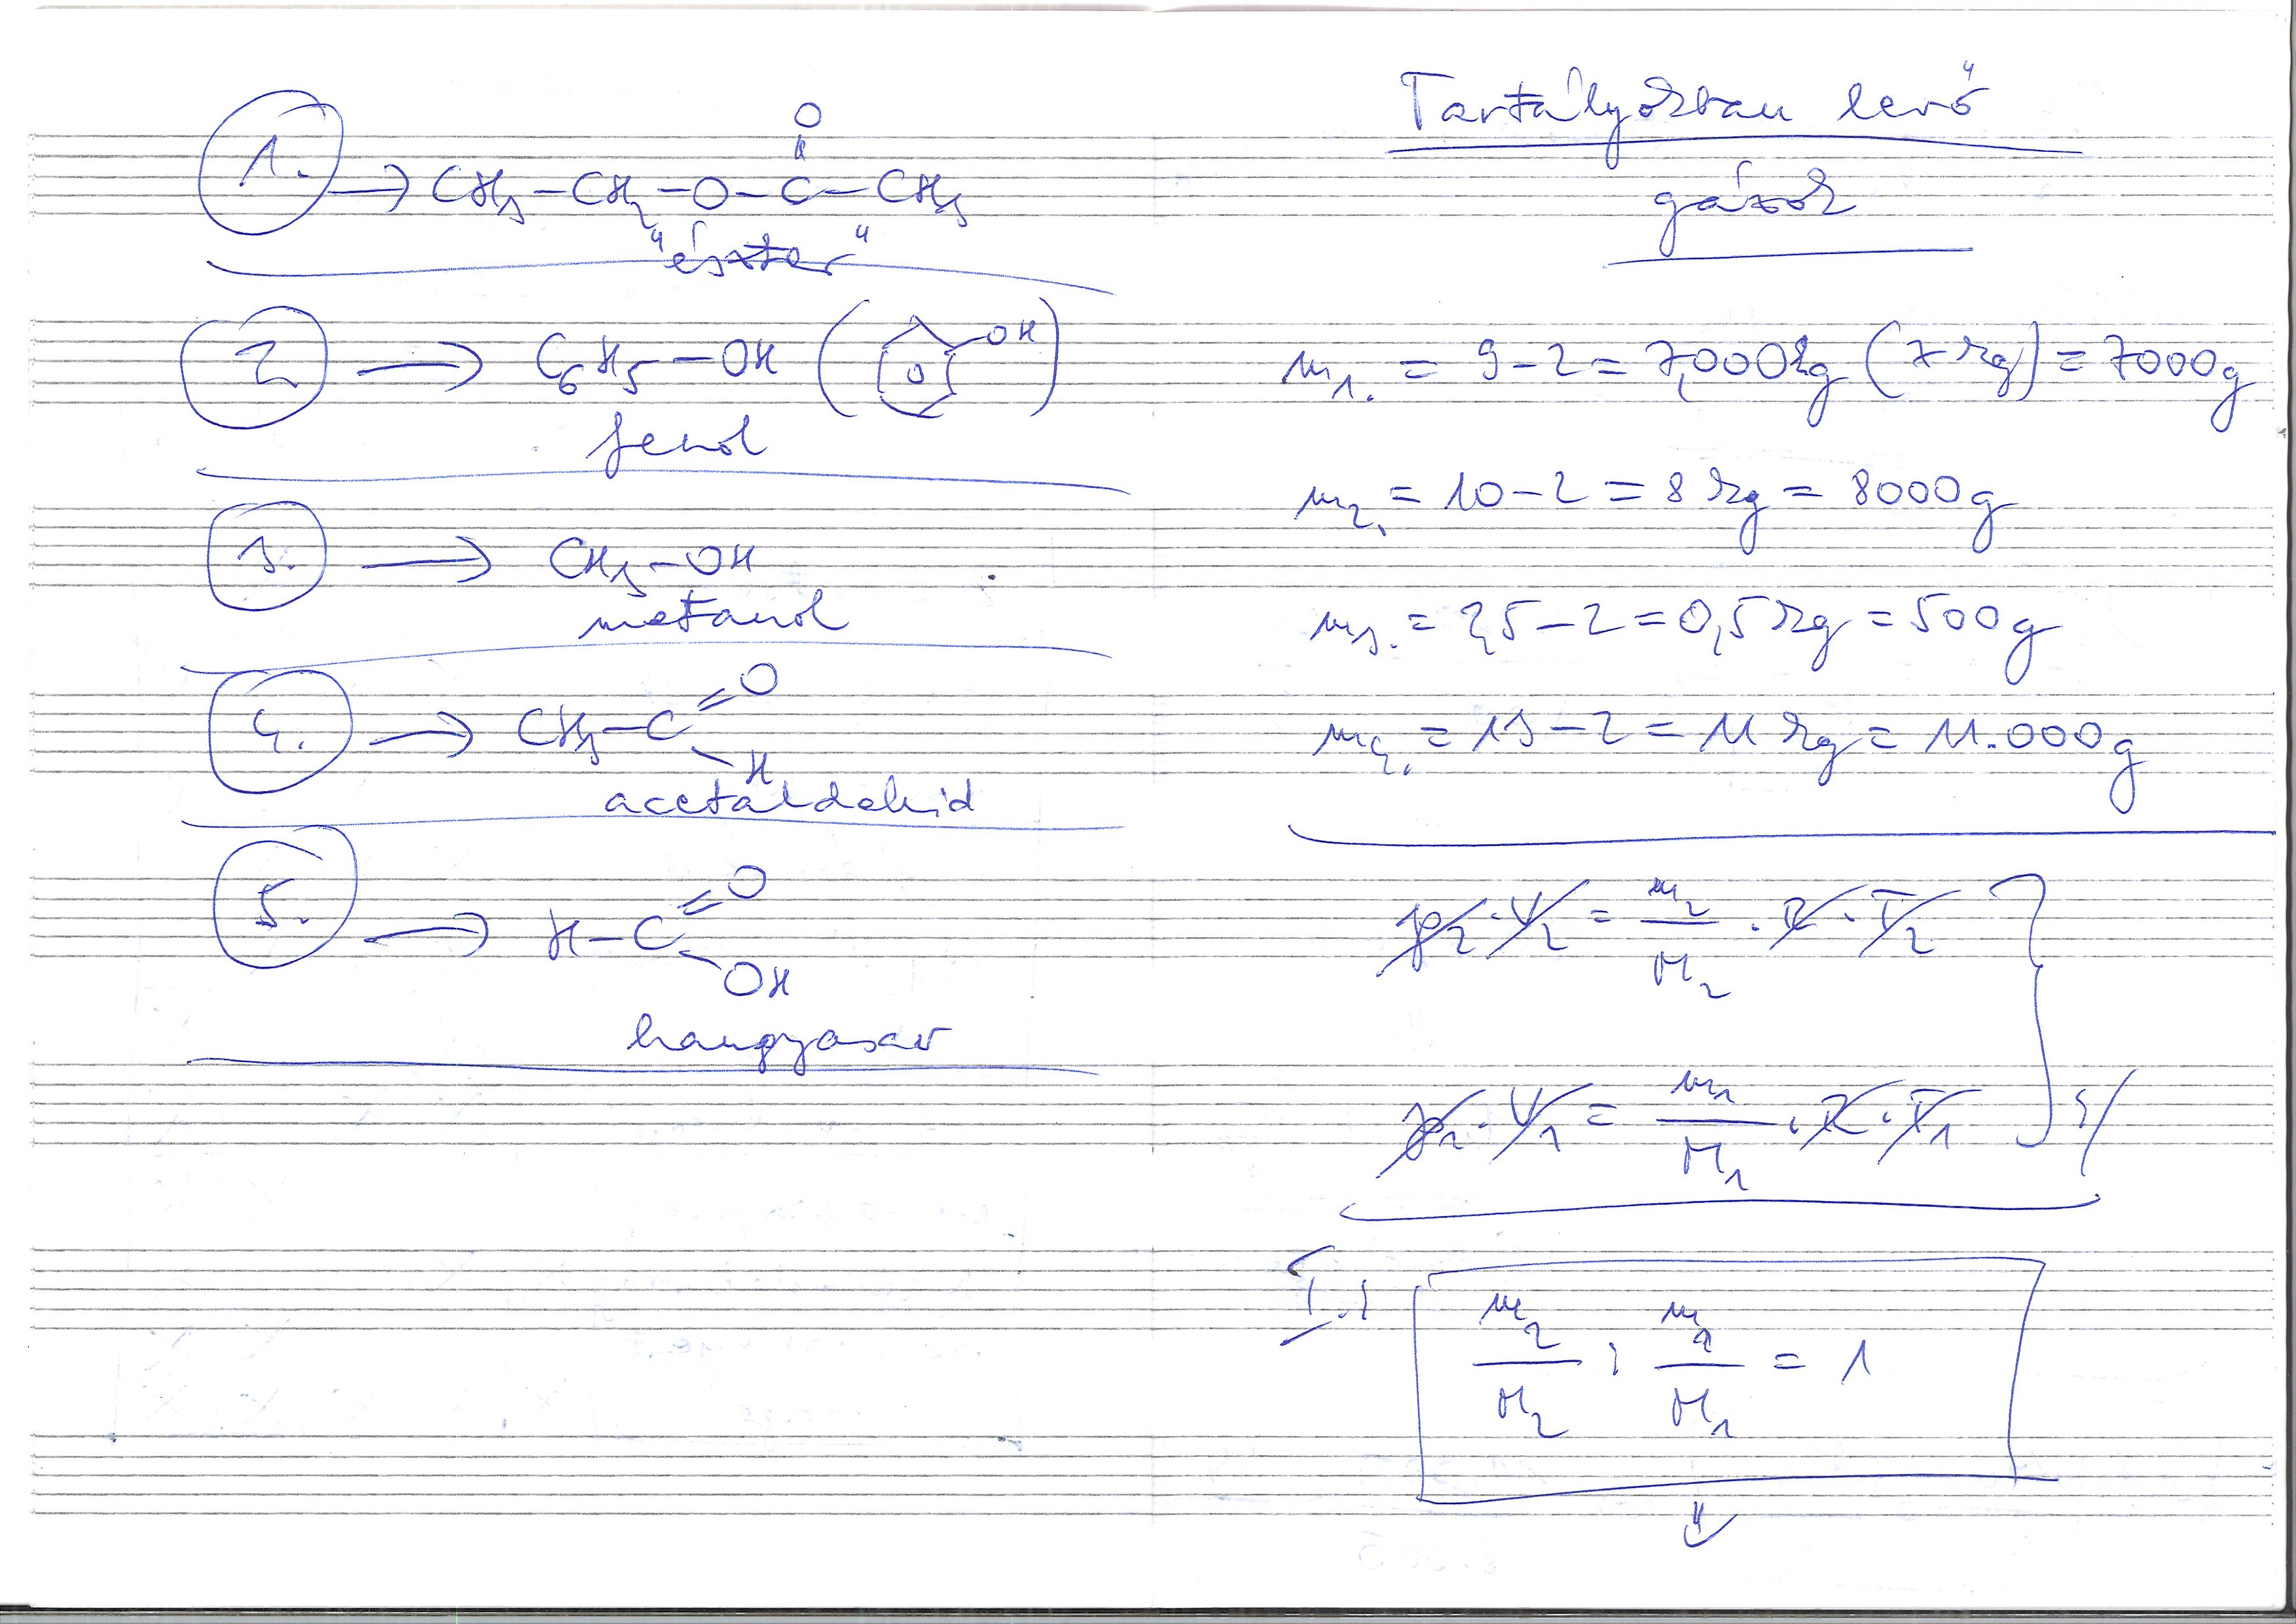 1. → CH3-CH2-O-C-CH3
O
"észter"
2 → C6H5-OH (OH)
fenol
3. → CH3-OH
metanol
4. → CH3-C=O
H
acetaldehid
5. → H-C=O
OH
hangyasav
Tartályokban levő
gázok
m1. = 9-2 = 7,000kg (7 kg) = 7000g
m2. = 10-2 = 8 kg = 8000g
m3. = 2,5-2 = 0,5 kg = 500g
m4. = 13-2 = 11 kg = 11.000g
p2·V2 = m2/M2 · R · T2
p1·V1 = m1/M1 · R · T1
I.)
m2/M2 : m1/M1 = 1
⇓